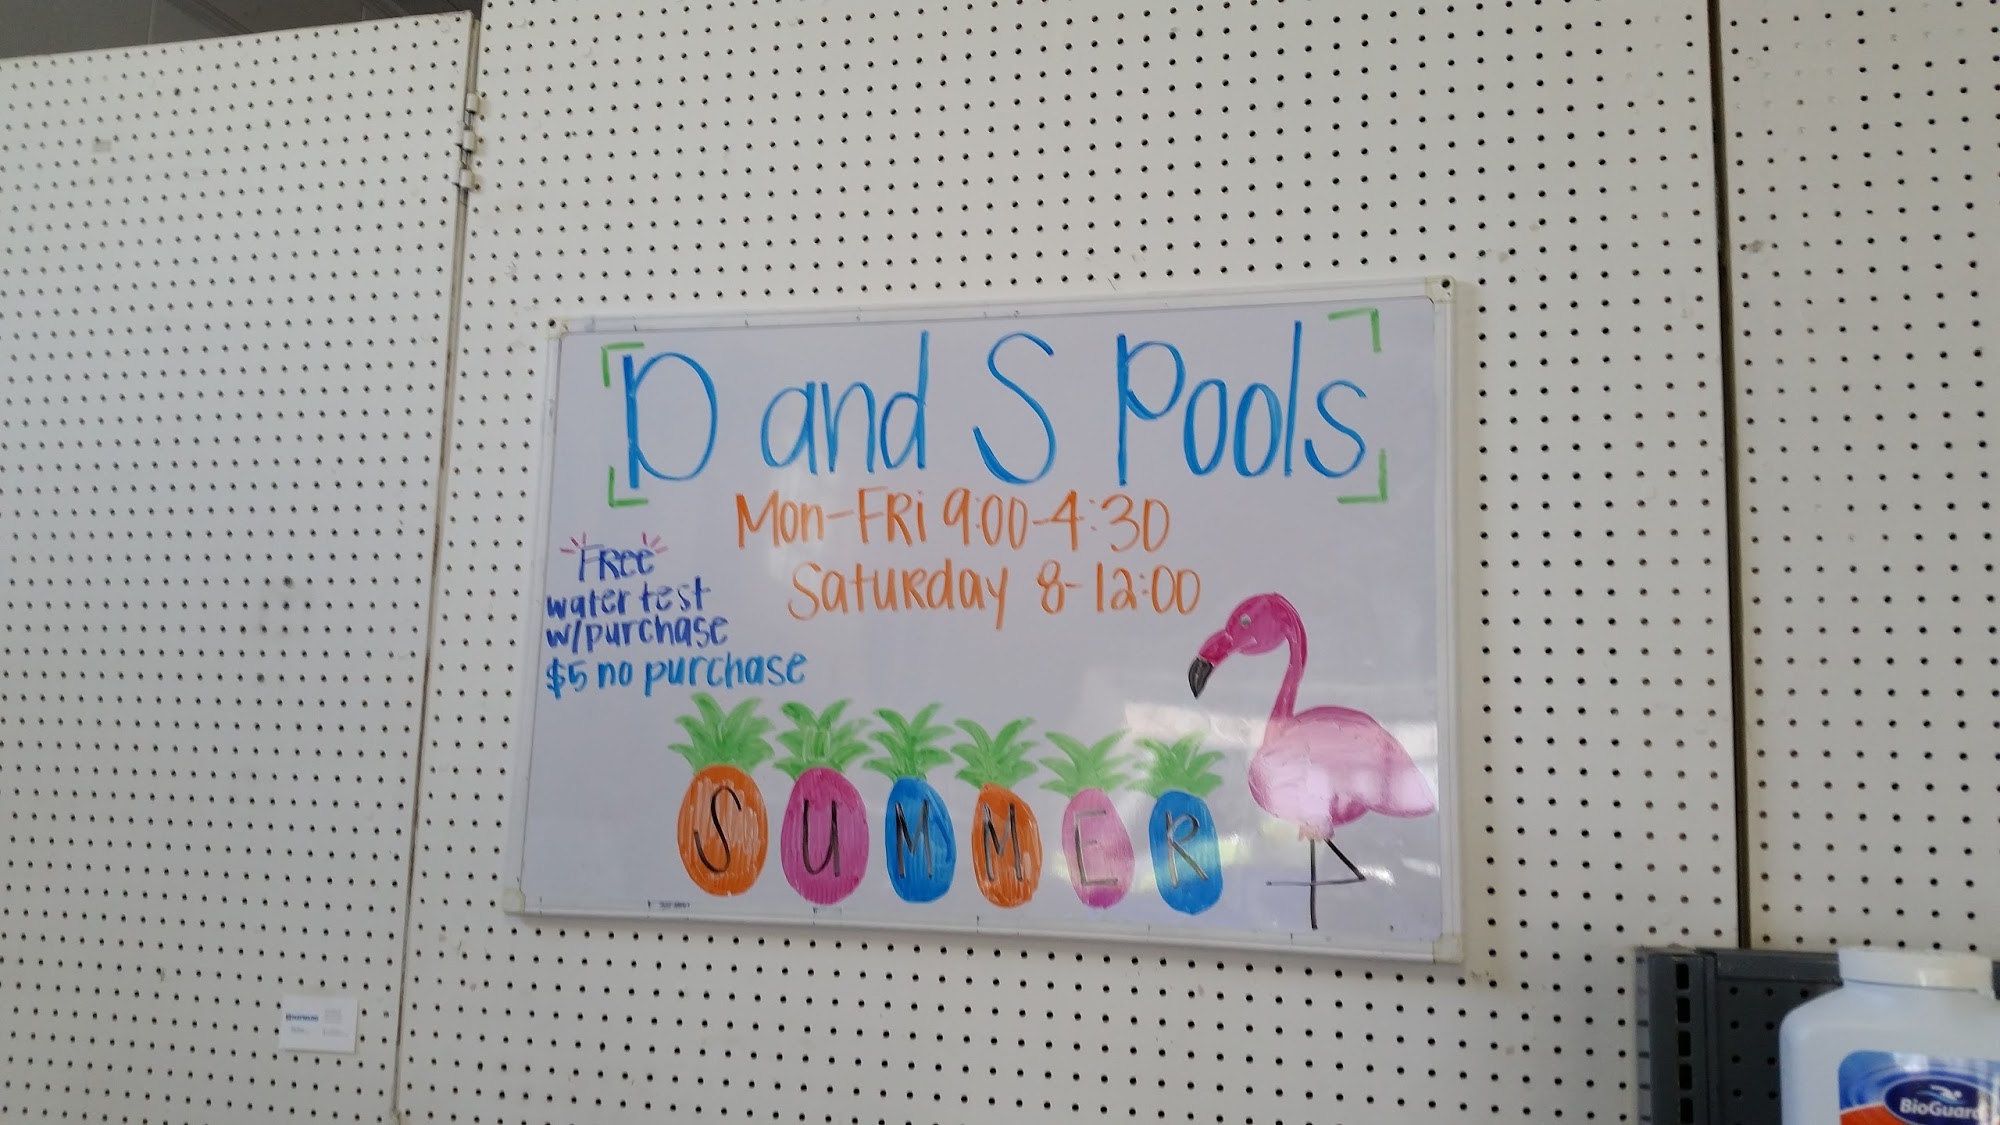 D and S Pools
Mon-FRi 9:00-4:30
Saturday 8-12:00
FRee
water test
w/purchase
$5 no purchase
SUMMER
BioGuard